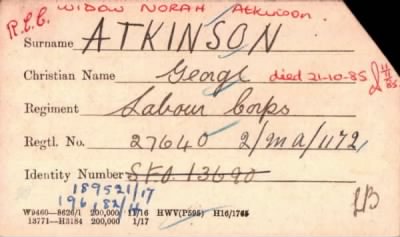 R.C.C. WIDOW NORAH Atkinson.
Surname ATKINSON
Christian Name George died 21-10-85
Regiment Labour Corps
Regtl. No. 27640 2/MA/1172
Identity Number S.F.O. 13690
189521/17
196182/17
W9460—8626/1 200,000 11/16 HWV(P595) H16/1765
13771—H3184 200,000 1/17